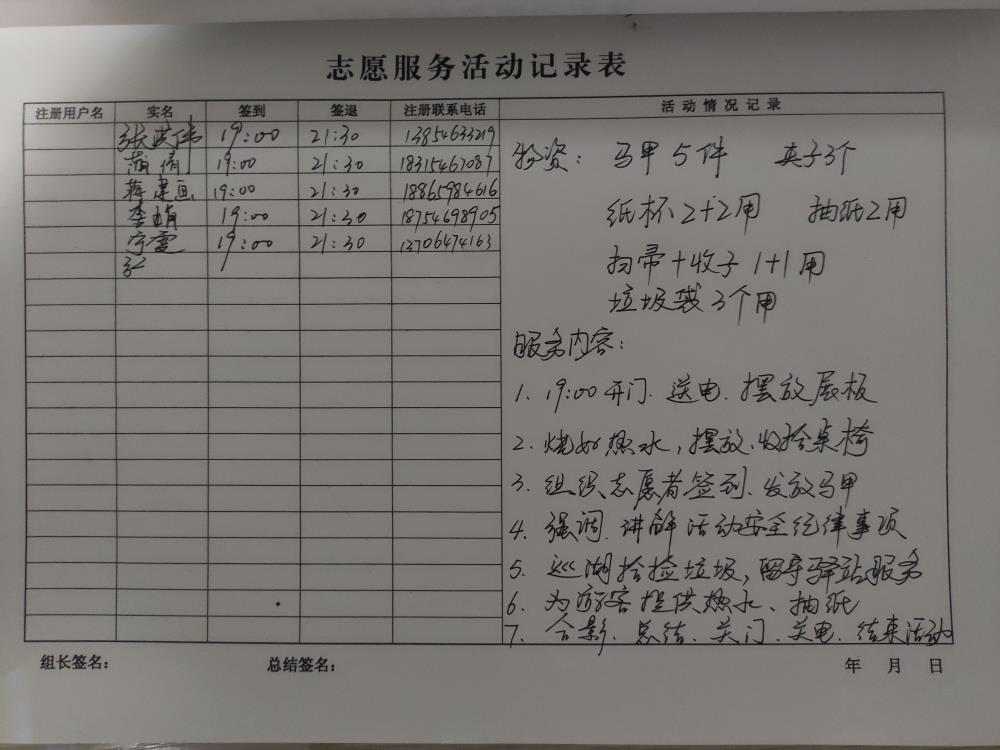 志愿服务活动记录表
注册用户名 实名 签到 签退 注册联系电话 活动情况记录
张洪伟 19:00 21:30 13854633219
倩 19:00 21:30 18315467087
蒋建 19:00 21:30 18865984616
李娟 19:00 21:30 18754698905
宁雪 19:00 21:30 13706474163
物资: 马甲5件 夹子3个
纸杯2+2用 抽纸2用
扫帚+收子 1+1用
垃圾袋3个用
服务内容:
1. 19:00开门、送电、摆放展板
2. 烧如热水,摆放、收拾桌椅
3. 组织志愿者签到、发放马甲
4. 强调、讲解活动安全纪律事项
5. 巡湖捡拾垃圾,留守驿站服务
6. 为游客提供热水、抽纸
7. 合影、总结、关门、关电、结束活动
组长签名: 总结签名: 年 月 日